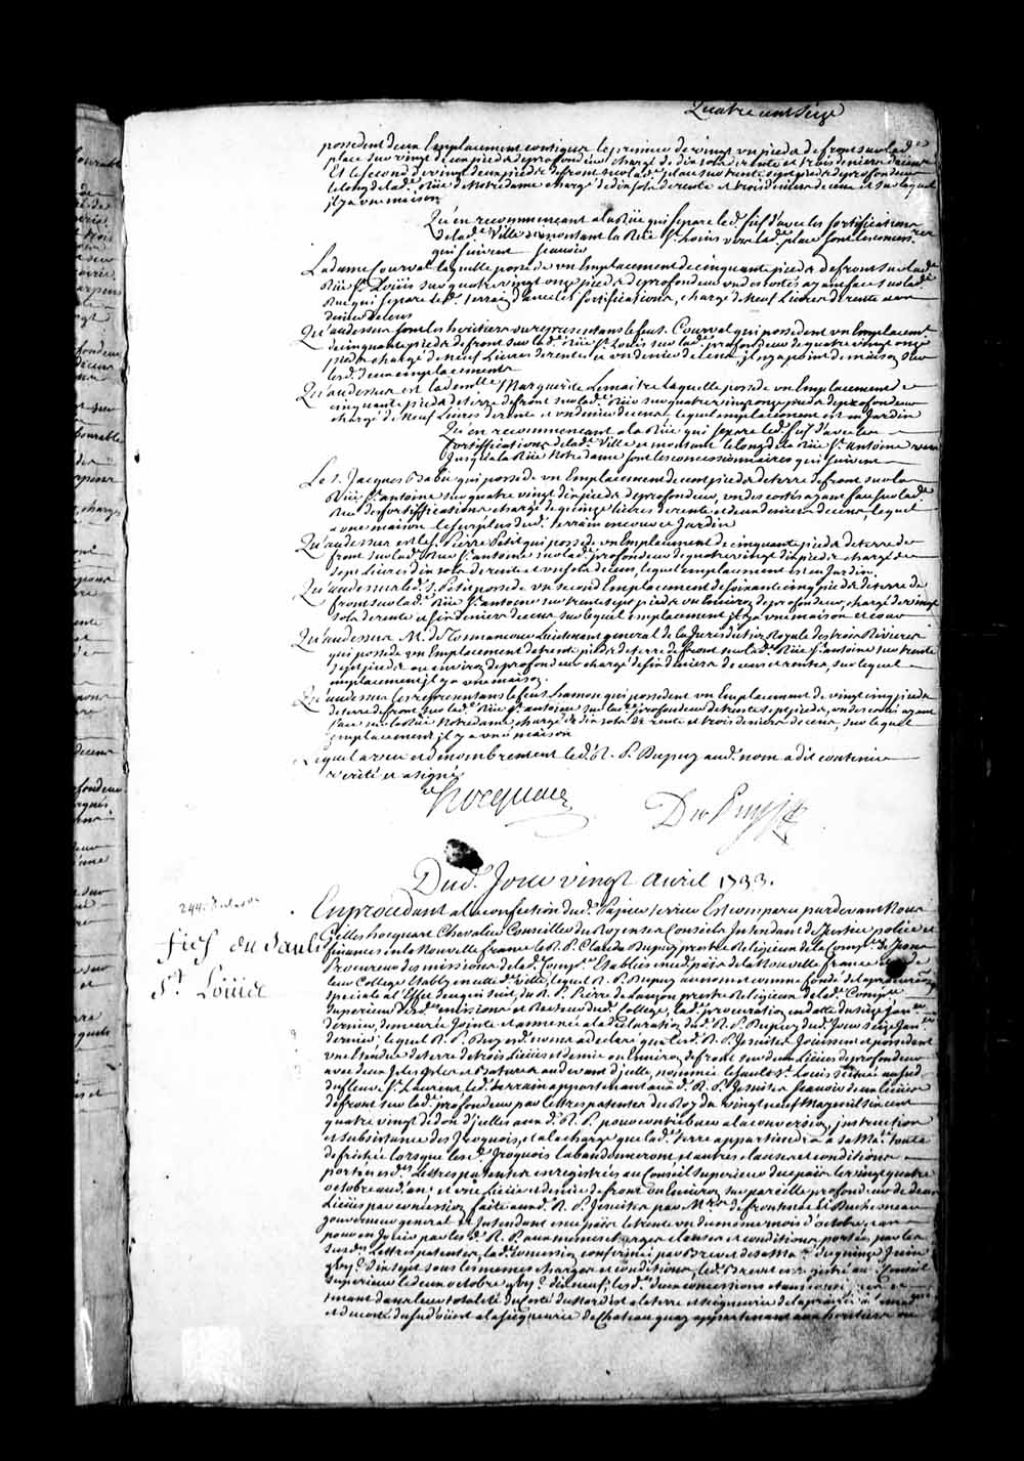 Quatre cent Seize
possedent deux Emplacement contigus le premier de vingt un pieds de front sur lad.e
place sur vingt deux pieds de profondeur chargé de dix sols de rente et trois deniers de cens
Et le second de vingt deux pieds de front sur lad.e place sur trente sept pieds de profondeur
le long de lad.e Rüe de Notre dame chargé de dix sols de rente et trois deniers de cens et sur lequel
jl y a une maison
Qu'en recommençant a la Rüe qui separe led. fief d'avec les fortifications
de lad.e Ville et montant la Rüe St. Loüis vers lad.e place sont les concess.res
qui suivent Scavoir
La dame Courval laquelle possede un Emplacement de cinquante pieds de front sur lad.e
Rüe St. Loüis sur quatre vingt onze pieds de profondeur un des costés ayant face sur lad.e
Rue qui separe led. terrain d'avec les fortifications, chargé de Neuf Livres de rente et un
denier de cens
Qu'audessus sont les heritiers ou representans le feu s. Courval qui possedent un Emplacem.t
de cinquante pieds de front sur lad.e Rüe St. Loüis sur lad.e profondeur de quatre vingt onze
pieds chargé de Neuf Livres de rente et un denier de cens, jl n'y a point de maison sur
lesd. deux emplacements
Qu'audessus est la dem.lle Marguerite Lemaitre Laquelle possede un Emplacement de
cinquante pieds de terre de front sur lad.e Rüe sur quatre vingt onze pieds de profondeur
chargé de Neuf Livres de rente et un denier de cens, lequel emplacement est en Jardin
Qu'en recommençant a la Rüe qui separe led. fief d'avec les
fortiffications de lad.e Ville et montant le long de la Rüe St. antoine vers
Jusqu'a la Rüe Notre dame sont les concessionnaires qui suivent
Le S. Jacques Babie qui possede un Emplacement de cent pieds de terre de front sur la
Rüe St. antoine sur quatre vingt dix pieds de profondeur, un des costés ayant face sur lad.e
Rue des fortiffications chargé de quinze livres de rente et deux deniers de cens, lequel
a une maison le surplus dud. terrain encore en Jardin
Qu'audessus est le s. Pierre Petit qui possede un Emplacement de cinquante pieds de terre de
front sur lad.e Rüe St. antoine sur lad.e profondeur de quatre vingt dix pieds chargé de
sept Livres dix sols de rente et un sol de cens, lequel emplacement est en Jardin
Qu'audessus led. s. Petit possede un second Emplacement de soixante cinq pieds de terre de
front sur lad.e Rüe St. antoine sur trente sept pieds ou Environ de profondeur, chargé de vingt
sols de rente et six deniers de cens sur lequel Emplacement jl y a une maison et cour
Qu'audessus M. de Tonnancour Lieutenant general de la Jurisdiction Royale des trois Rivieres
qui possede un Emplacement de trente pieds de terre de front sur lad.e Rüe St. antoine sur trente
sept pieds ou environ de profondeur chargé de six deniers de cens et rentes, sur lequel
emplacement jl y a une maison.
Qu'audessus les representans le feu s. hamon qui possedent un Emplacement de vingt cinq pieds
de terre de front sur lad.e Rüe St. antoine sur lad.e profondeur de trente sept pieds, un des costés ayant
face sur la Rüe Notre dame chargé de dix sols de rente et trois deniers de cens, sur lequel
Emplacement jl y a une maison
Lequel aveu et denombrement led. R. P. Dupuy aud. nom a dit contenir
verité et a signé
Hocquart
Du Puy J
Dud. Jour vingt avril 1733.
En procedant a la confection dud. Papier terrier Est comparu pardevant Nous
Gilles hocquart Chevalier Conseiller du Roy en ses Conseils Intendant de Justice police et
finances en la Nouvelle france le R. P. Claude Dupuy prestre Religieux de la Comp.e de Jesus
Procureur des missions de lad.e Comp.e Etablies en ce païs de la Nouvelle france et de
leur College Etably en cette d.e ville, lequel R. P. Dupuy au nom et comme fondé de la procuration
speciale a l'Effet de ce qui suit, du R. P. Pierre de Lauzon prestre Religieux de lad.e Comp.e
Superieur desd. missions et Recteur dud. College, lad.e procuration en datte du seize Janv.er
dernier, demeurée Jointe et annexée a la declaration dud. R. P. Dupuy dud. Jour seize Janv.er
dernier; lequel R. P. Dupuy esd. noms a declaré que lesd. R. P. Jesuites Joüissent et possedent
une Etendue de terre de trois lieües et demie ou Environ de front sur deux lieües de profondeur
avec deux Isles, Islets et Battures au devant d'jcelle, nommée le Sault St. Louis située au sud
du fleuve St. Laurent led. terrain appartenant aux d. R. P. Jesuites Scavoir deux lieües
de front sur lad.e profondeur par lettres patentes du Roy du vingt neuf May mil six cent
quatre vingt de don d'jcelles auxd. R. P. pour contribuer a la conversion, jnstruction
et subsistance des Jroquois, et a la charge que lad.e terre appartiendra a sa Ma.té toute
defrichée lorsque lesd. Jroquois l'abandonneront et autres clauses et conditions
portées esd. Lettres patentes enregistrées au Conseil superieur de ce païs le vingt quatre
octobre aud. an; et une Lieüe et demie de front ou Environ sur pareille profondeur de deux
Lieües par concession faite auxd. R. P. Jesuites par M.rs de frontenac Et Duchesneau
gouverneur general Et Intendant en ce païs le trente un du mesme mois d'octobre, et an
pour en Jouir par lesd. R. P. aux mêmes charges clauses et conditions portées par les
susd. Lettres patentes, lad.e Concession confirmée par Brevet de sa Ma.té du quinze Juin
gbj.c dix sept sous les mesmes charges et conditions, led. Brevet enregistré au Conseil
Superieur le deux octobre gbj.c dix neuf; lesd. deux concessions et
tenant dans leur totalité du costé du Nord est a la terre et seigneurie de la prairie
et du costé du sud oüest a la seigneurie de Chateauguay appartenant aux heritiers
244. f
fief du Sault
St. Loüis